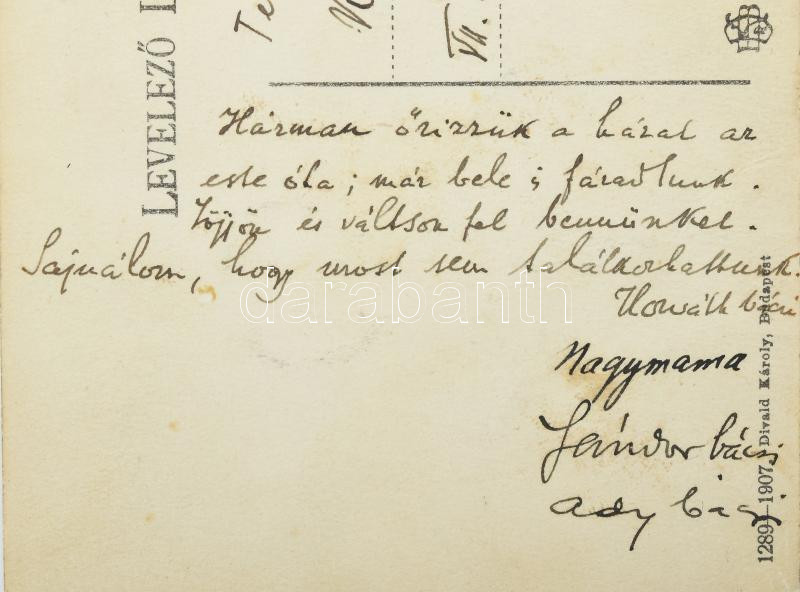 LEVELEZŐ L
Te
VII.
Hárman őrizzük a házat az
este óta; már bele is fáradtunk.
Jöjjön és váltson fel bennünket.
Sajnálom, hogy most sem találkozhattunk.
Horváth bácsi
Nagymama
Sándor bácsi
Ady bácsi
darabanth
1289—1907, Divald Károly, Budapest